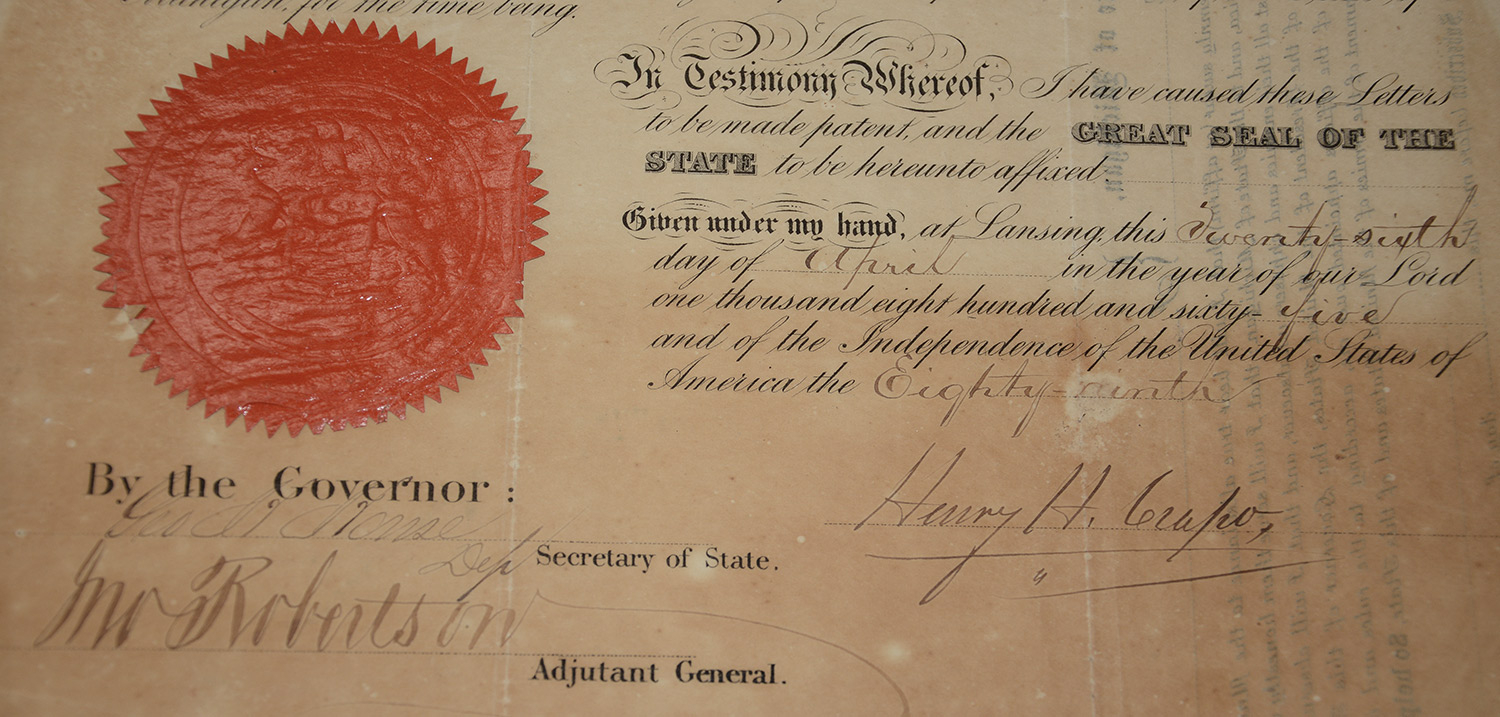 for the time being.
In Testimony Whereof, I have caused these Letters
to be made patent, and the GREAT SEAL OF THE
STATE to be hereunto affixed.
Given under my hand, at Lansing, this Twenty-sixth
day of April in the year of our Lord
one thousand eight hundred and sixty-five
and of the Independence of the United States of
America the Eighty-ninth
Henry H. Crapo,
By the Governor:
Geo
Dep Secretary of State.
Jno Robertson
Adjutant General.